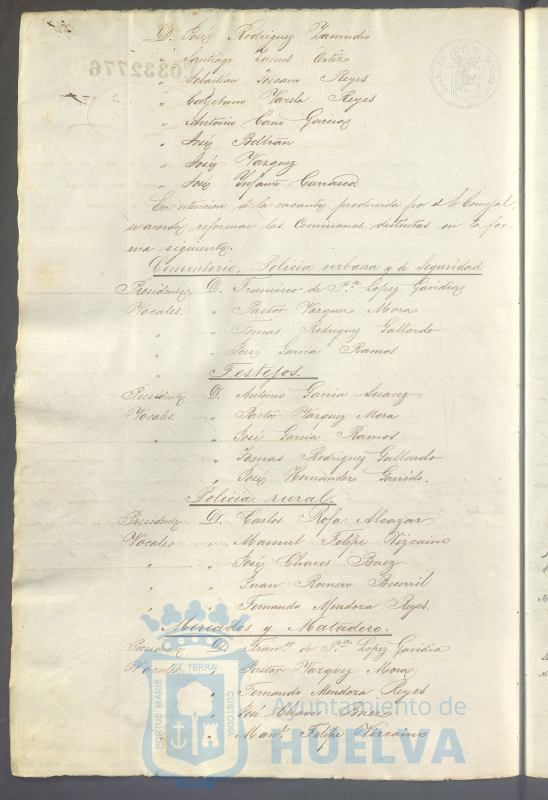 D. José Rodriguez Zamudio
" Santiago Ortiz
" Sebastián Toscano Reyes
" Cayetano Varela Reyes
" Antonio Cano Garcia
" José Beltrán
" José Vazquez
" José Infante Carrasco.
En atencion á la vacante producida por el Concejal,
se acordó reformar las Comisiones distintas en la for
ma siguiente.
Cementerio, Policia urbana y de Seguridad
Presidente. D. Francisco de P.ª Lopez Gavidia
Vocales. " Pastor Vazquez Mora
" " Tomas Rodriguez Gallardo
" " José Garcia Ramos
Festejos.
Presidente D. Antonio Garcia Suarez
Vocales. " Pastor Vazquez Mora
" " José Garcia Ramos
" Tomas Rodriguez Gallardo
" José Hernandez Garrido.
Policia rural.
Presidente D. Carlos Rofa Alcazar
Vocales " Manuel Felipe Vizcaino
" " José Chaves Baez
" " Juan Romero
" " Fernando Mendoza Reyes.
Mercados y Matadero.
Presidente D. Fran.co de P.ª Lopez Gavidia
Vocales " Pastor Vazquez Mora
" Fernando Mendoza Reyes
" José Chaves Baez
" Man.l Felipe Vizcaino
0332776
PORTUS MARIS ET TERRAE CUSTODIA
Ayuntamiento de
HUELVA